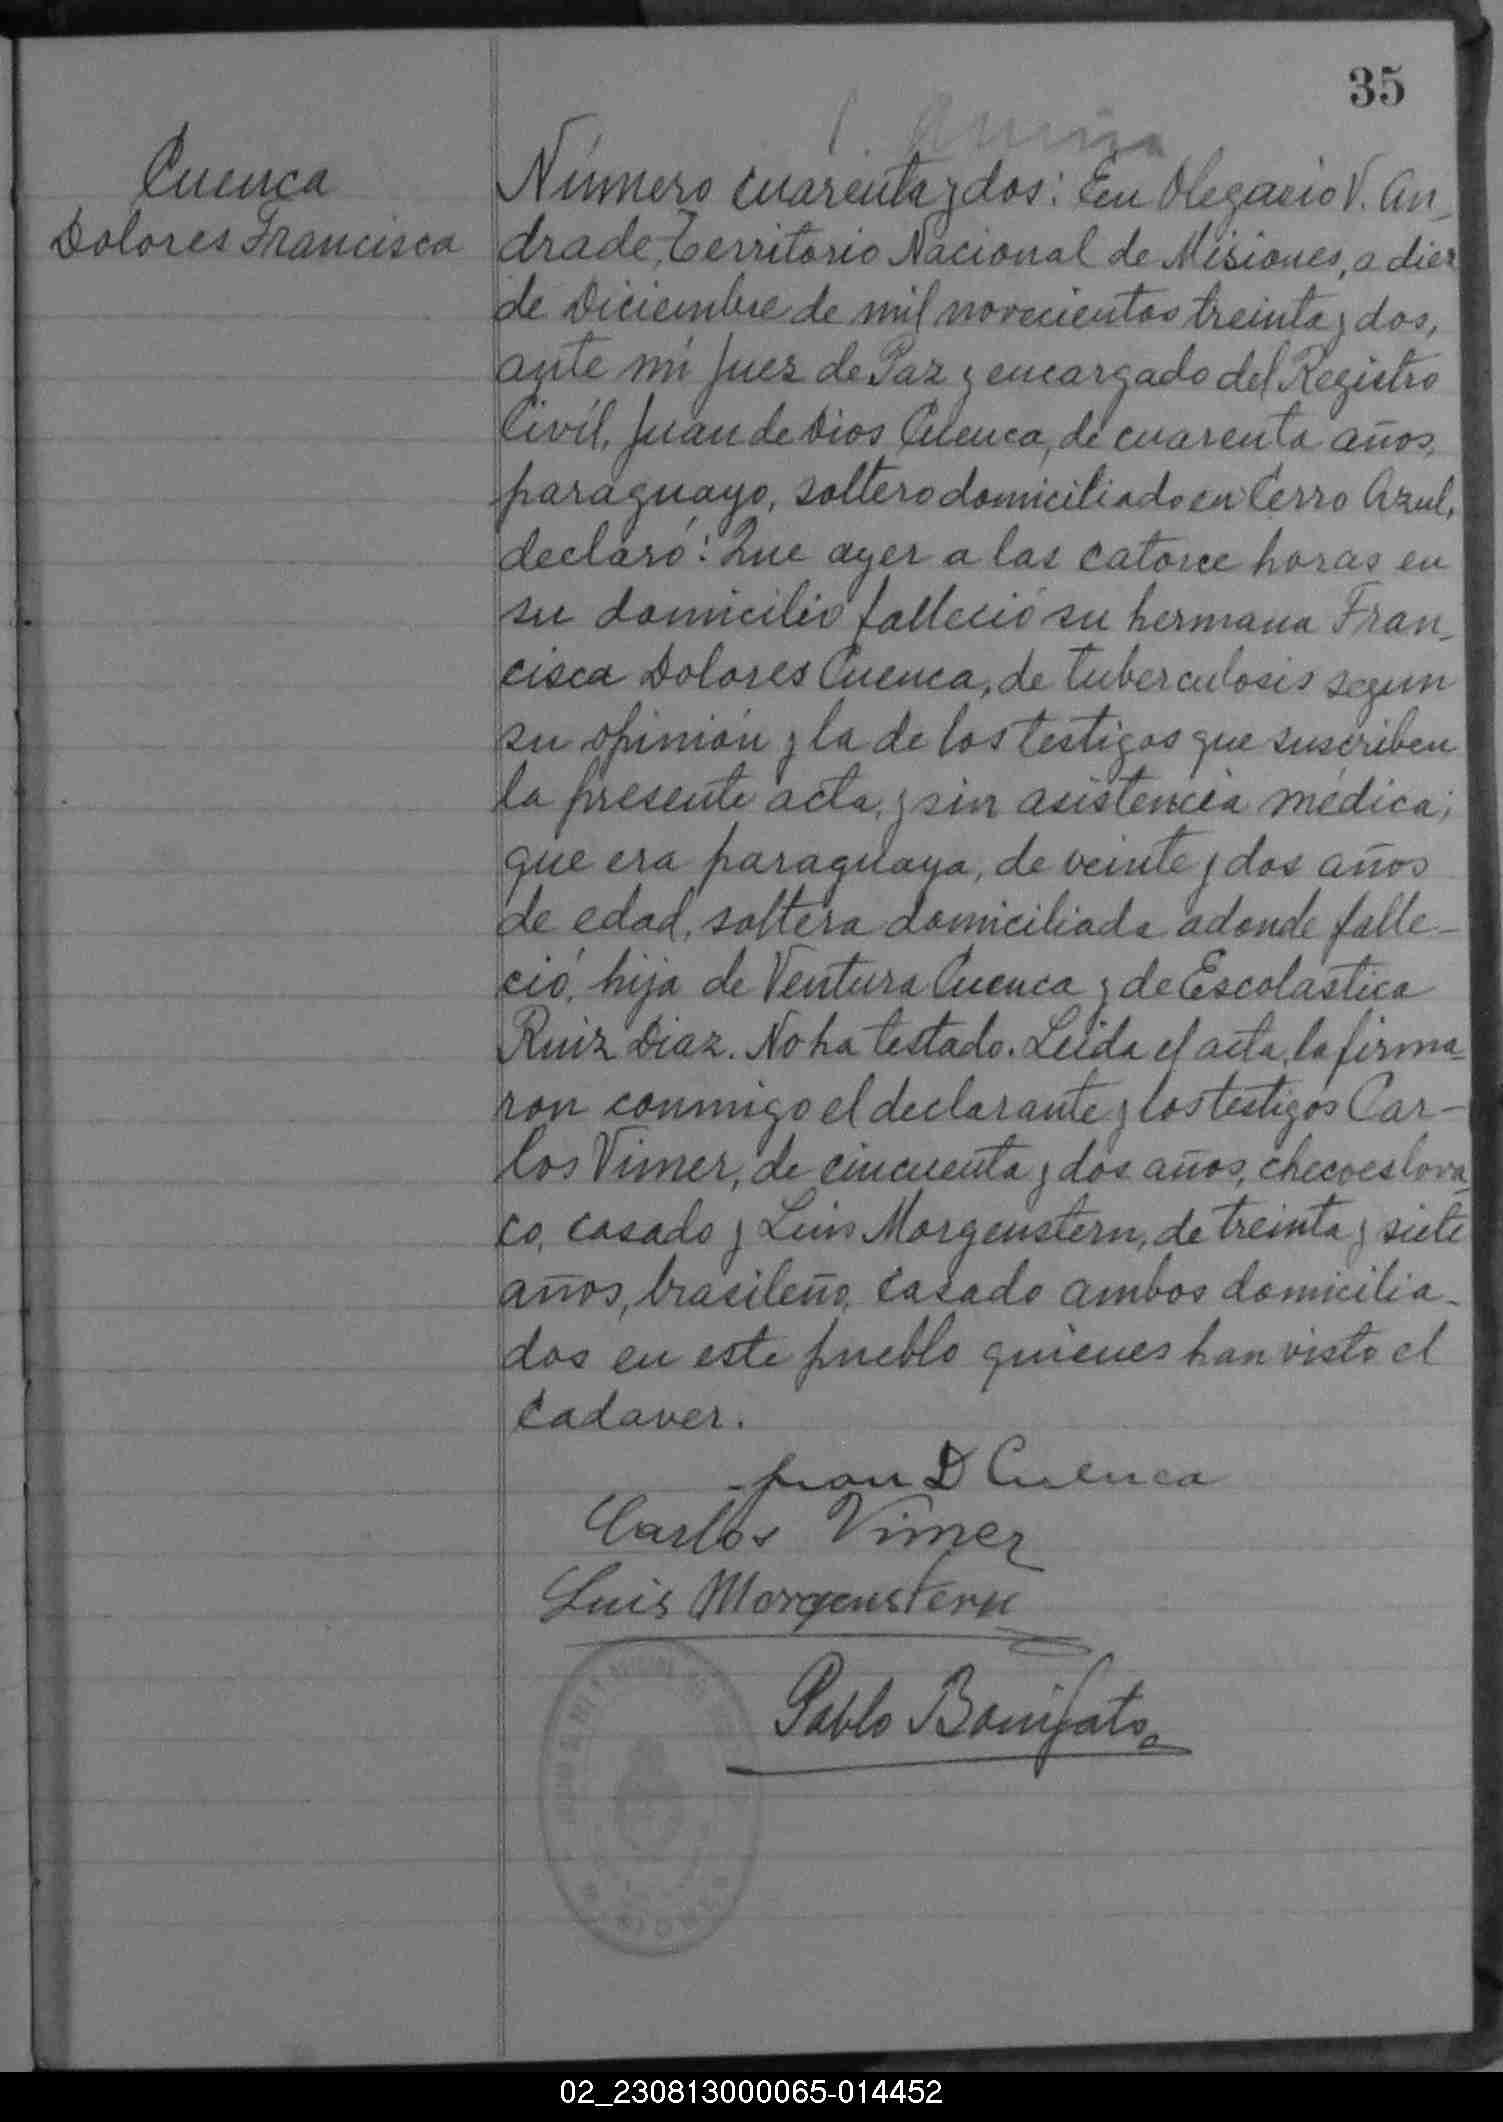 35
Cuenca
Dolores Francisca
Número cuarenta y dos: En Olegario V. An-
drade, Territorio Nacional de Misiones, a diez
de Diciembre de mil novecientos treinta y dos,
ante mí Juez de Paz y encargado del Registro
Civil, Juan de Dios Cuenca, de cuarenta años,
paraguayo, soltero domiciliado en Cerro Azul,
declaró: Que ayer a las catorce horas en
su domicilio falleció su hermana Fran-
cisca Dolores Cuenca, de tuberculosis segun
su opinión y la de los testigos que suscriben
la presente acta, y sin asistencia médica;
que era paraguaya, de veinte y dos años
de edad, soltera domiciliada adonde falle-
ció, hija de Ventura Cuenca y de Escolastica
Ruiz Diaz. No ha testado. Leida el acta, la firma-
ron conmigo el declarante y los testigos Car-
los Vimer, de cincuenta y dos años, checoeslova-
co, casado y Luis Morgenstern, de treinta y siete
años, brasileño, casado ambos domicilia-
dos en este pueblo quienes han visto el
cadaver.
Juan D Cuenca
Carlos Vimer
Luis Morgenstern
Pablo Bonifato
02_230813000065-014452